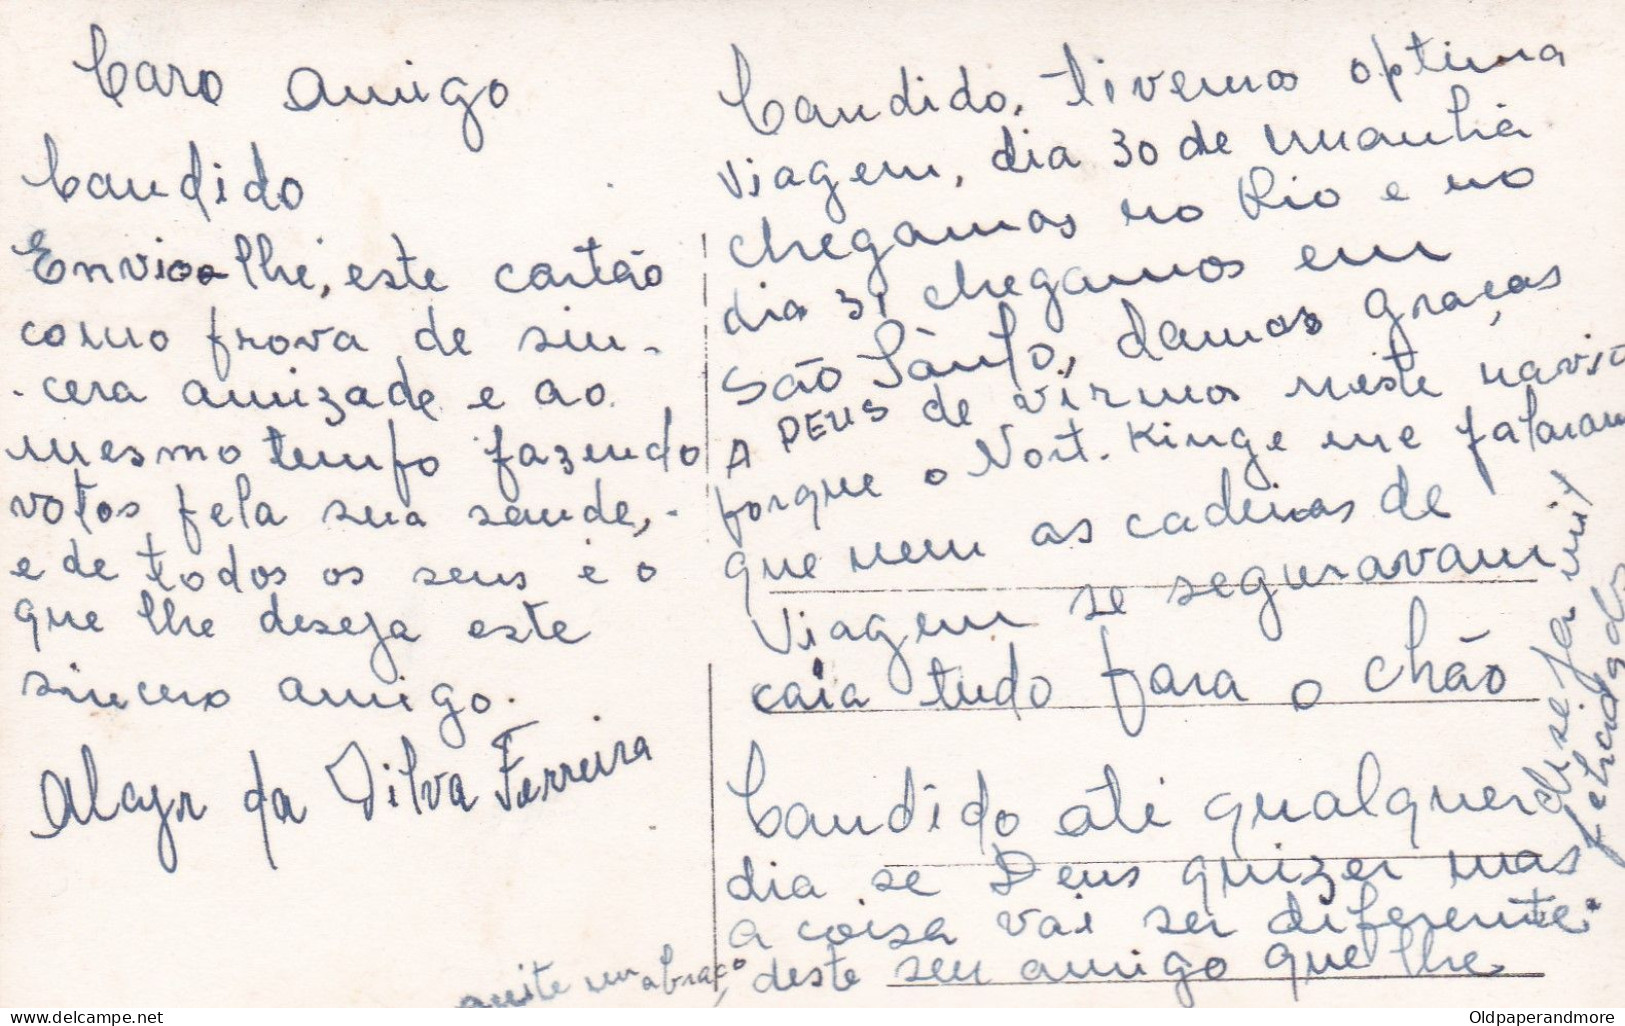 Caro amigo
Candido
Envio-lhe, este cartão
como prova de sin-
-cera amizade e ao
mesmo tempo fazendo
votos pela sua saude,
e de todos os seus é o
que lhe deseja este
sincero amigo.
Alayr da Silva Ferreira
Candido, tivemos optima
viagem, dia 30 de manhã
chegamos no Rio e no
dia 31 chegamos em
São Pàulo, damos graças
A DEUS de virmos neste navio
porque o Nort. Kinge me falaram
que nem as cadeiras de
viagem se seguravam
caia tudo para o chão
Candido até qualquer
dia se Deus quizer mas
a coisa vai ser diferente.
deste seu amigo que lhe
deseja mil
felicidades
aceite um abraço,
delcampe.net
Oldpaperandmore